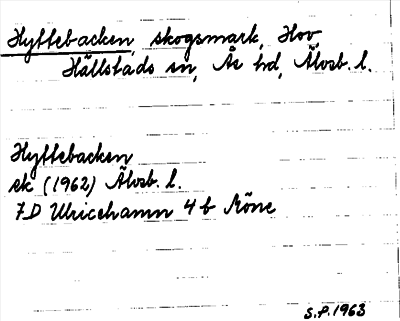 Hyttebacken, skogsmark, Hov,
Hällstads sn, Ås hd, Älvsb. l.
Hyttebacken
ek (1962) Älvsb. l.
7D Ulricehamn 4b Möne
S.P. 1963